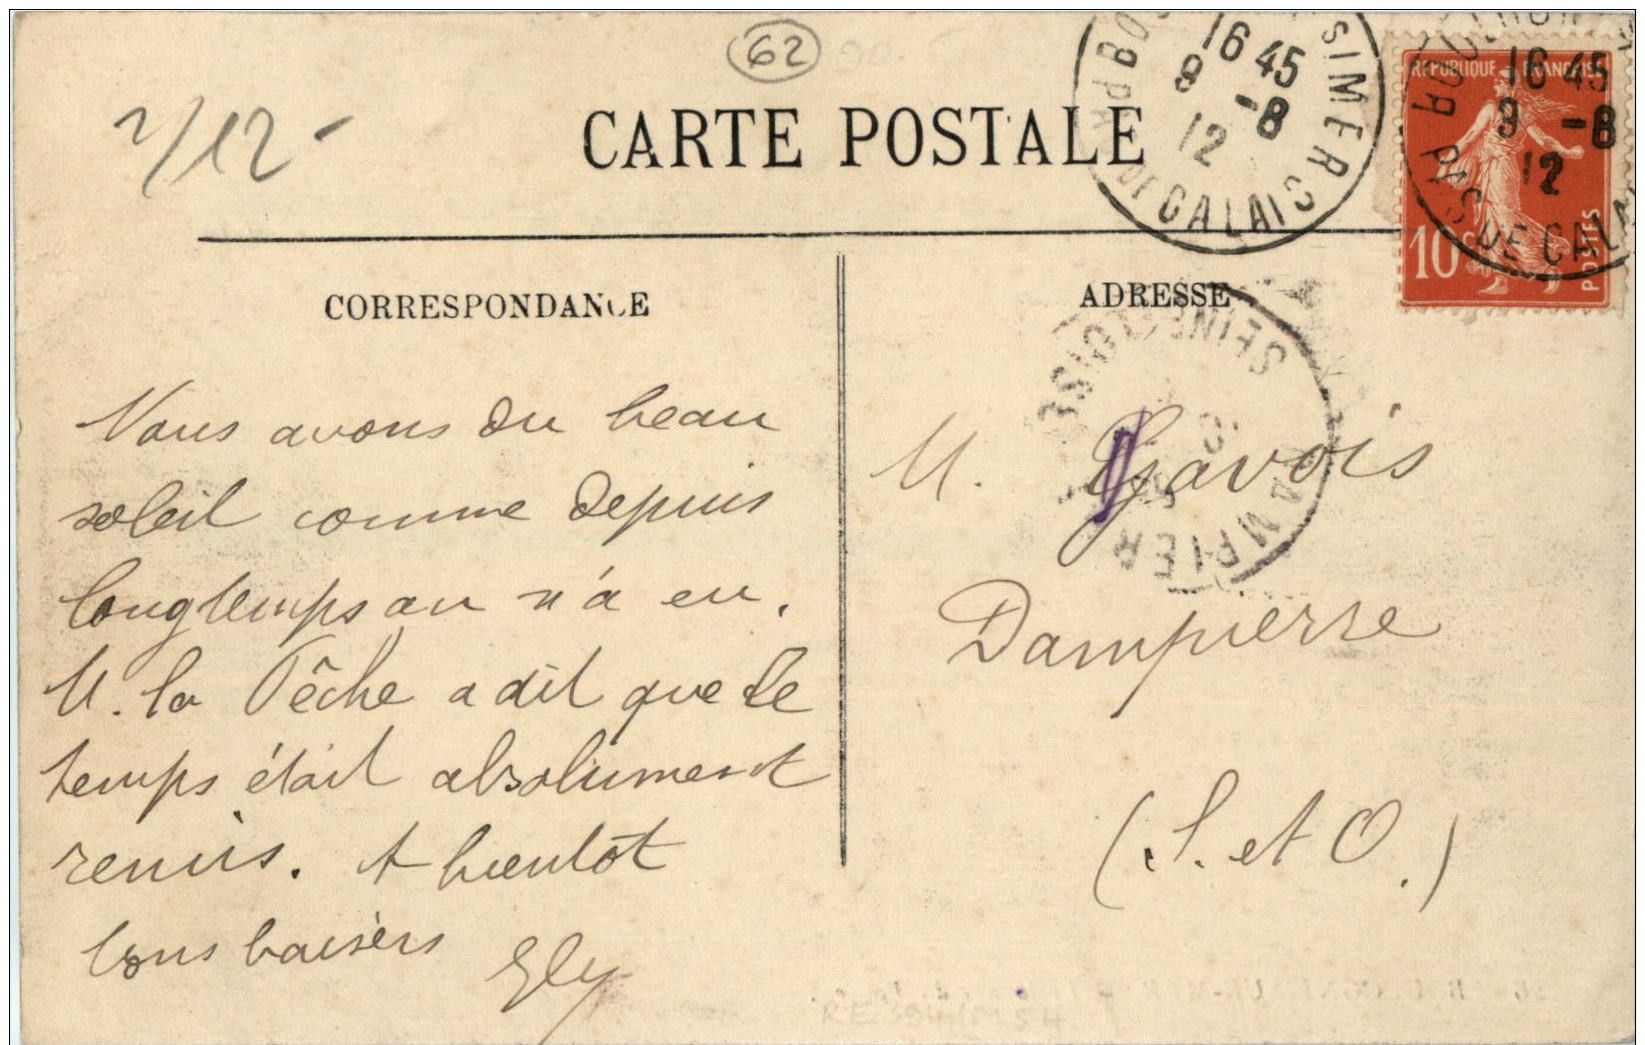 62
2/12-
CARTE POSTALE
16 45
9 -8
12
SIMER
PAS DE CALAIS
REPUBLIQUE FRANÇAISE
16 45
9 -8
12
PAS DE CALA
10c
POSTES
CORRESPONDANCE
Nous avons du beau
soleil comme depuis
longtemps on n'a eu.
M. la Pêche a dit que le
temps était absolument
remis. A bientôt
bons baisers Ely
ADRESSE
SEINE ET OISE
DAMPIERRE
M. Gavois
Dampierre
(S. et O.)